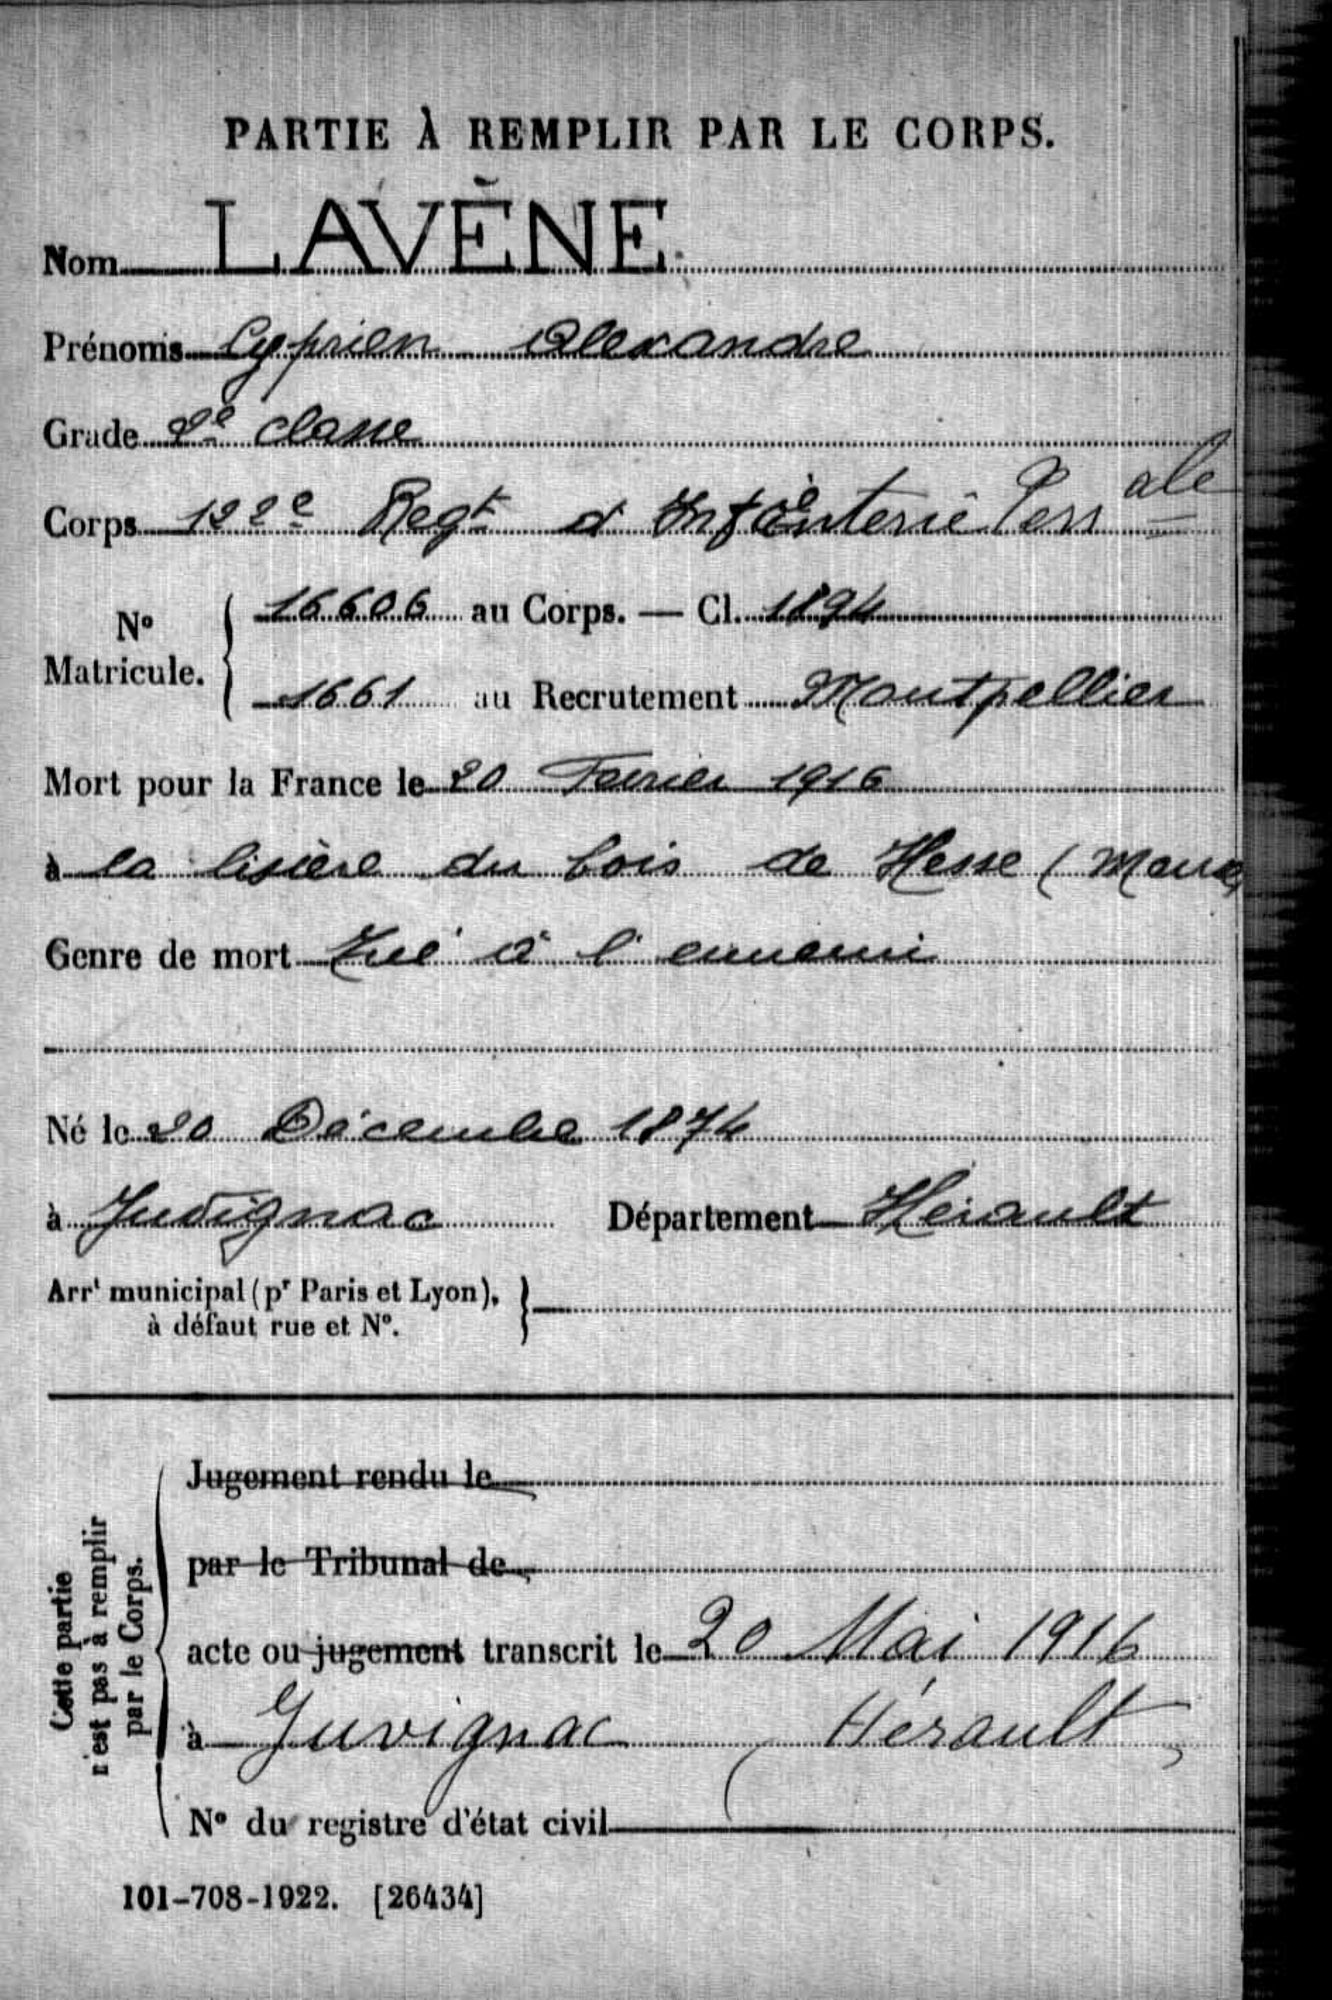 PARTIE À REMPLIR PAR LE CORPS.
Nom LAVÈNE
Prénoms Cyprien Alexandre
Grade 2e classe
Corps 122e Regt d'Infanterie Terr ale
No Matricule. 16606 au Corps. — Cl. 1894
1661 au Recrutement Montpellier
Mort pour la France le 20 Fevrier 1916
à la lisière du bois de Hesse (Meuse)
Genre de mort Tué à l'ennemi
Né le 20 Décembre 1874
à Juvignac Département Hérault
Arrt municipal (pr Paris et Lyon),
à défaut rue et No.
Cette partie
n'est pas à remplir
par le Corps.
Jugement rendu le
par le Tribunal de
acte ou jugement transcrit le 20 Mai 1916
à Juvignac (Hérault)
No du registre d'état civil
101-708-1922. [26434]